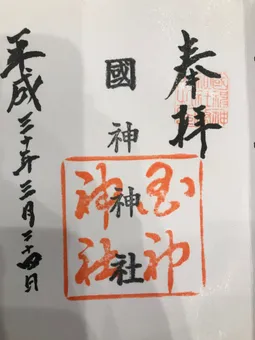 奉拝
國神神社
国神
神社
平成三十年三月二十四日